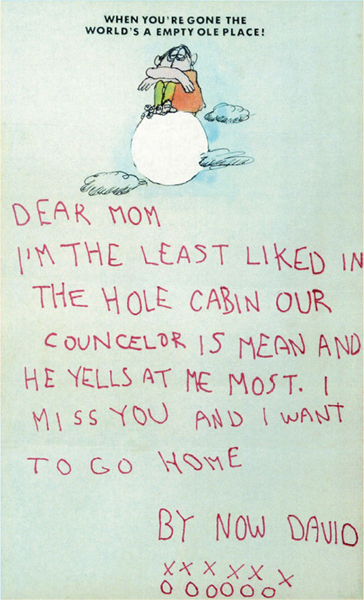 WHEN YOU'RE GONE THE
WORLD'S A EMPTY OLE PLACE!
DEAR MOM
I'M THE LEAST LIKED IN
THE HOLE CABIN OUR
COUNCELOR IS MEAN AND
HE YELLS AT ME MOST. I
MISS YOU AND I WANT
TO GO HOME
BY NOW DAVID
XXXXXX
OOOOOO